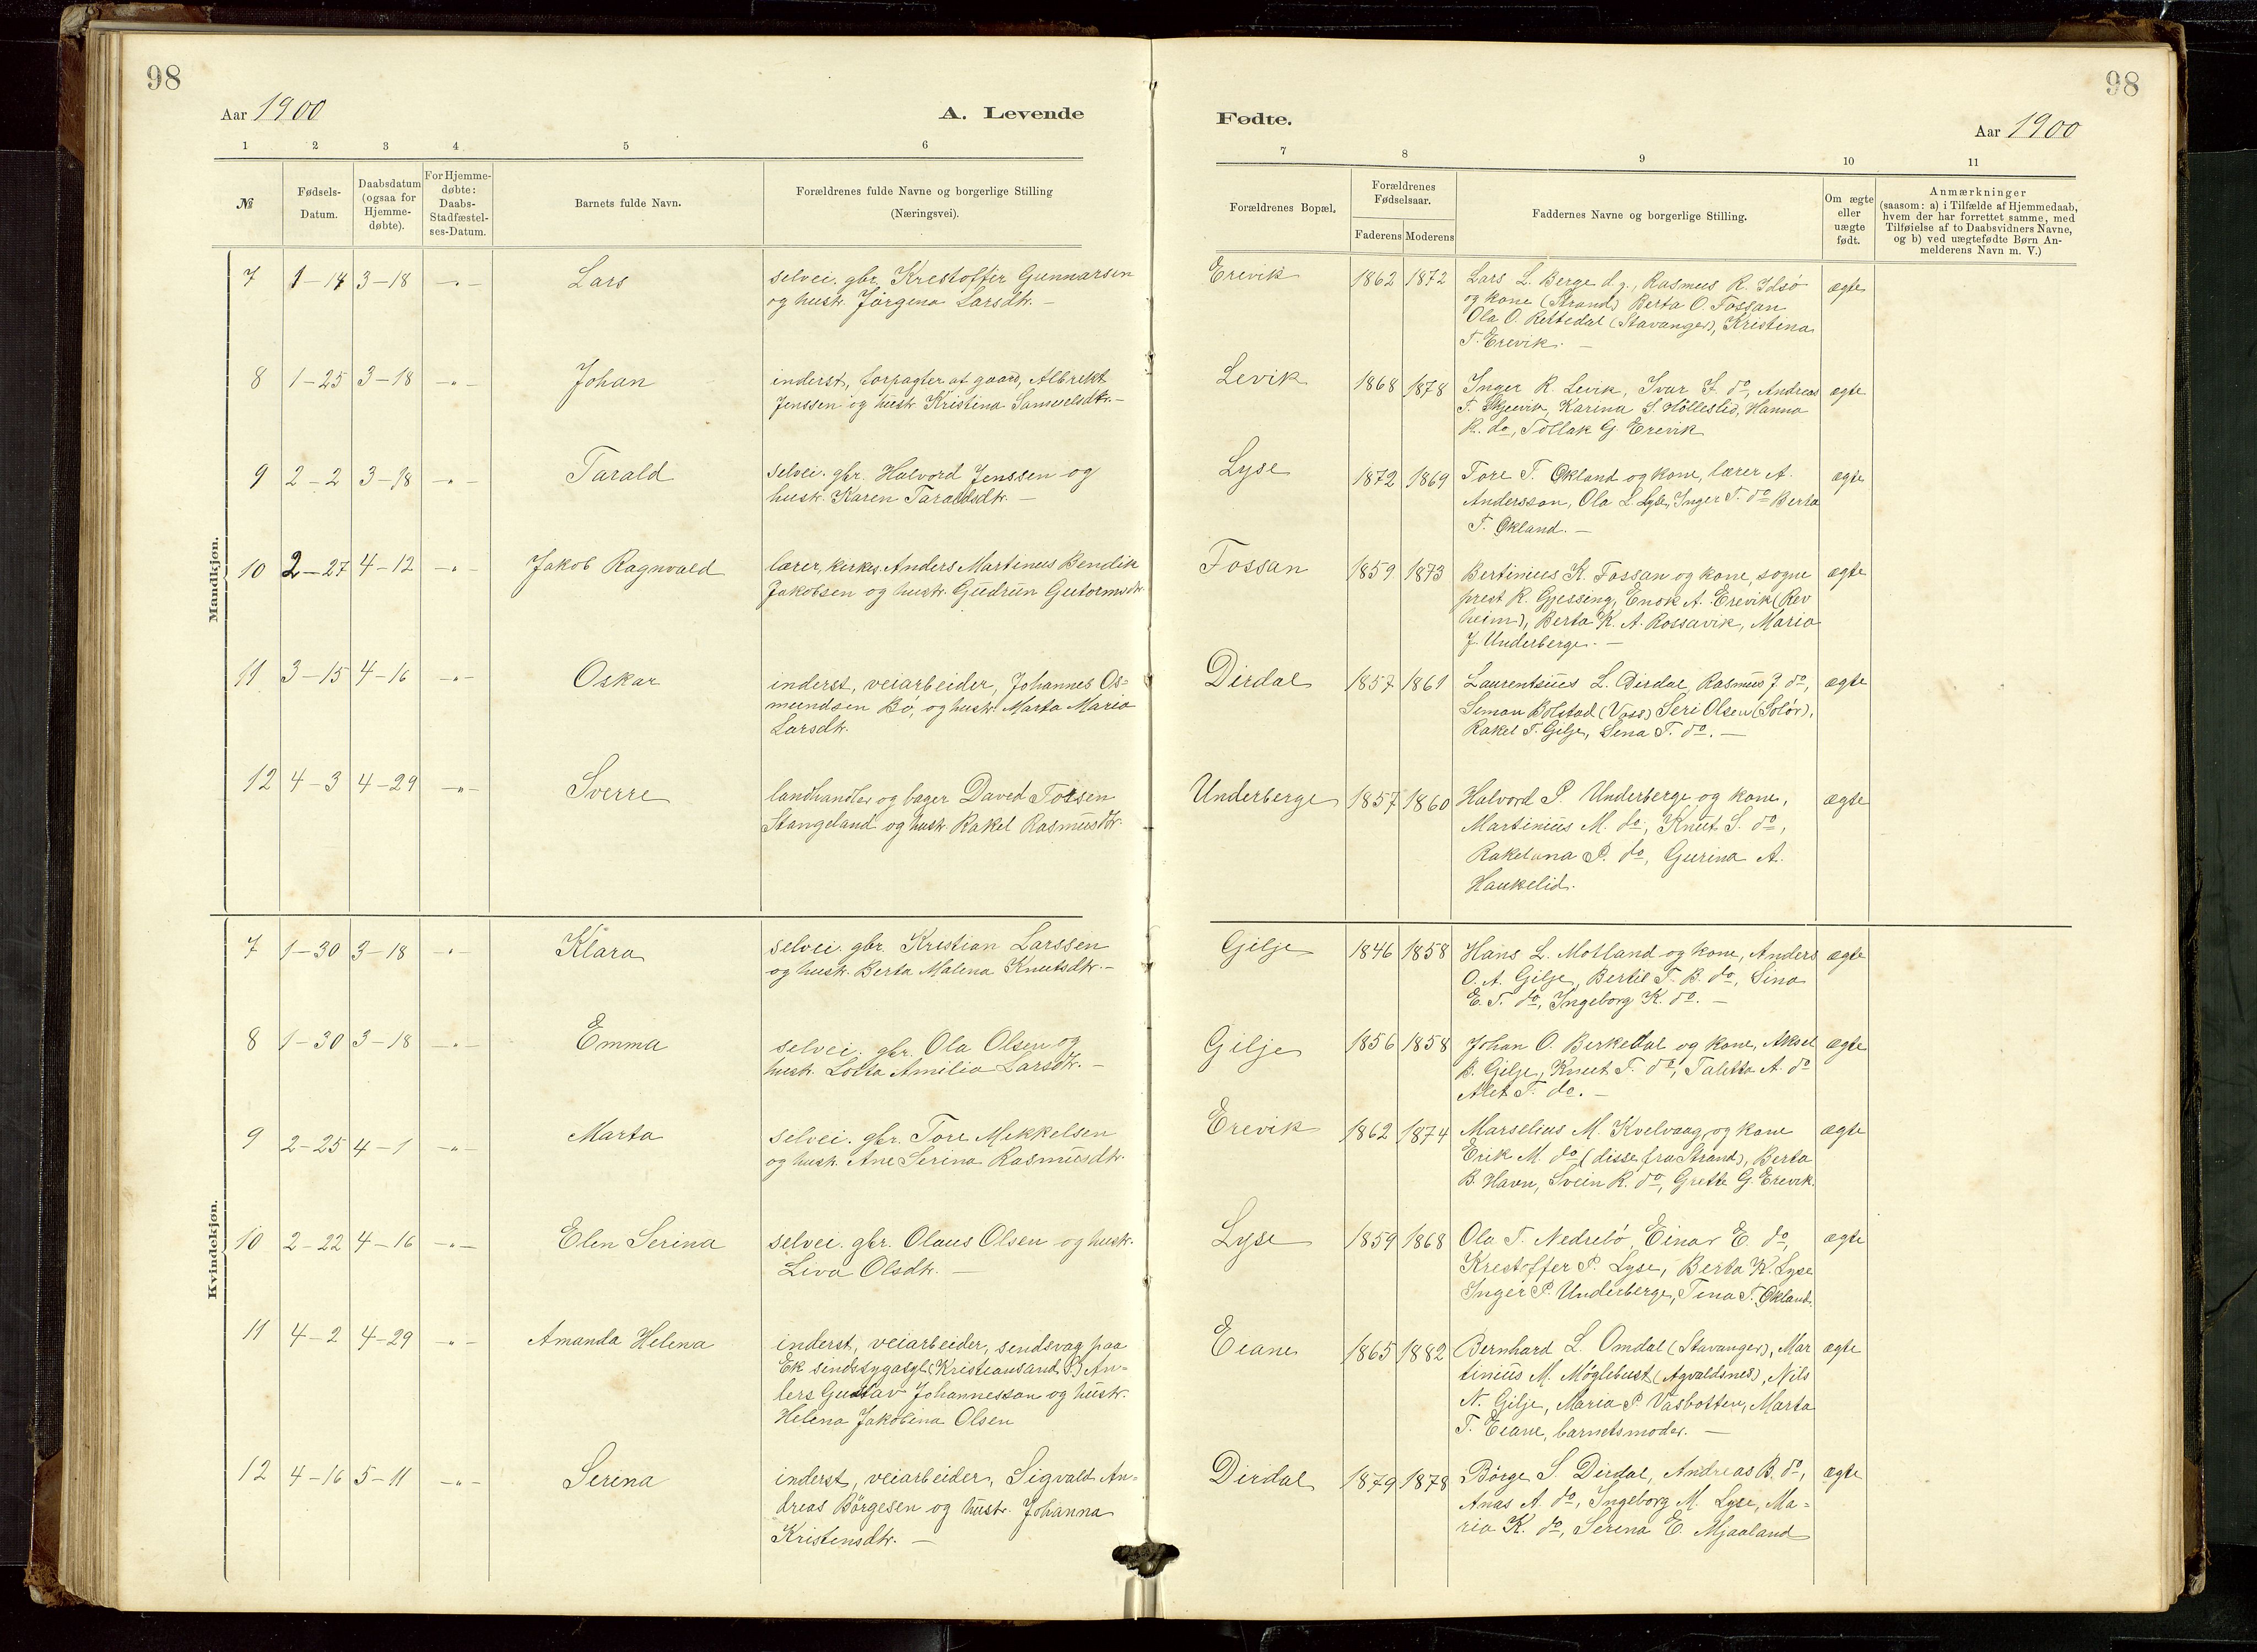 98
Aar 1900
A. Levende
1 2 3 4 5 6
№
Fødsels-
Datum.
Daabsdatum
(ogsaa for
Hjemme-
døbte).
For Hjemme-
døbte:
Daabs-
Stadfæstel-
ses-Datum.
Barnets fulde Navn.
Forældrenes fulde Navne og borgerlige Stilling
(Næringsvei).
Mandkjøn.
7 1-14 3-18 -"- Lars
selvei. gbr. Krestoffer Gunnarsen
og hustr. Jørgena Larsdtr. -
8 1-25 3-18 -"- Johan
inderst, forpagter af gaard, Albrekt
Jenssen og hustr. Kristina Samuelsdtr. -
9 2-2 3-18 -"- Tarald
selvei. gbr. Halvord Jenssen og
hustr. Karen Taraldsdtr. -
10 2-27 4-12 -"- Jakob Ragnvald
lærer, kirkes. Anders Martinus Bendik
Jakobsen og hustr. Gudrun Gutormsdtr.
11 3-15 4-16 -"- Oskar
inderst, veiarbeider, Johannes Os=
mundsen Bø, og hustr. Marta Maria
Larsdtr.
12 4-3 4-29 -"- Sverre
landhandler og bager Daved
Stangeland og hustr. Rakel Rasmusdtr.
Kvindekjøn.
7 1-30 3-18 -"- Klara
selvei. gbr. Kristian Larssen
og hustr. Berta Malena Knutsdtr. -
8 1-30 3-18 -"- Emma
selvei. gbr. Ola Olsen og
hustr. Lotta Amilia Larsdtr. -
9 2-25 4-1 -"- Marta
selvei. gbr. Tore Mikkelsen
og hustr. Ane Serina Rasmusdtr.
10 2-22 4-16 -"- Elen Serina
selvei. gbr. Olaus Olsen og hustr.
Liva Olsdtr. -
11 4-2 4-29 -"- Amanda Helena
inderst, veiarbeider, sendsvag paa
Ek sindssygasyl (Kristiansand S) An=
ders Gustav Johannesson og hustr.
Helena Jakobina Olsen
12 4-16 5-11 -"- Serina
inderst, veiarbeider, Sigvald An=
dreas Børgesen og hustr. Johanna
Kristensdtr. -
98
Fødte.
Aar 1900
7 8 9 10 11
Forældrenes Bopæl.
Forældrenes
Fødselsaar.
Faderens Moderens
Faddernes Navne og borgerlige Stilling.
Om ægte
eller
uægte
født.
Anmærkninger
(saasom: a) i Tilfælde af Hjemmedaab,
hvem der har forrettet samme, med
Tilføielse af to Daabsvidners Navne,
og b) ved uægtefødte Børn An-
melderens Navn m. V.)
Erevik 1862 1872 Lars L. Berge d.y., Rasmus R. Idsø ægte
og kone (Strand) Berta O. Fossan
Ola O. Rettedal (Stavanger), Kristina
T. Erevik. -
Levik 1868 1878 Inger R. Levik, Ivar J. do, Andreas ægte
T. Karina S. Hølleslid, Hanna
R. do, Tollak G. Erevik
Lyse 1872 1869 Tore T. Økland og kone, lærer A. ægte
Andersson, Ola L. Lyse, Inger T. do Berta
T. Økland. -
Fossan 1859 1873 Bertinius K. Fossan og kone, sogne ægte
prest R. Gjessing, Enok A. Erevik (Rev
heim), Berta K. A. Rossavik, Maria
J. Underberge. -
Dirdal 1857 1861 Laurentsius L. Dirdal, Rasmus J do, ægte
Simon Bolstad (Voss) Seri Olsen (Solør),
Rakel T. Gilje, Sena T. do. -
Underberge 1857 1860 Halvord P. Underberge og kone, ægte
Martinius M. do, Knut S. do,
Rakelana P. do, Gurina A.
Haukelid.
Gilje 1846 1858 Hans L. Motland og kone, Anders ægte
O. A. Gilje, Bertil T. B. do, Sina
E. T. do, Ingeborg K. do. -
Gilje 1856 1858 Johan O. Berkedal og kone, Aksel ægte
B. Gilje, Knut T. do, Taletta A. do
Alet T. do. -
Erevik 1862 1874 Marselius M. Kvelvaag og kone ægte
Erik M. do (disse fra Strand), Berta
B. Havn, Svein R. do, Grette G. Erevik.
Lyse 1859 1868 Ola T. Nedrebø, Einar E. do, ægte
Krestoffer P. Lyse, Berta K. Lyse
Inger P. Underberge, Tena T. Økland.
Eiane 1865 1882 Bernhard L. Omdal (Stavanger), Mar ægte
tinius M. Møglebust (Agvaldsnes), Nils
N. Gilje, Maria P. Vasbotten, Marta
T. Eiane, barnetsmoder. -
Dirdal 1879 1878 Børge S. Dirdal, Andreas B. do, ægte
Anas A. do, Ingeborg M. Lyse, Ma-
ria K. do, Serena E. Mjaaland